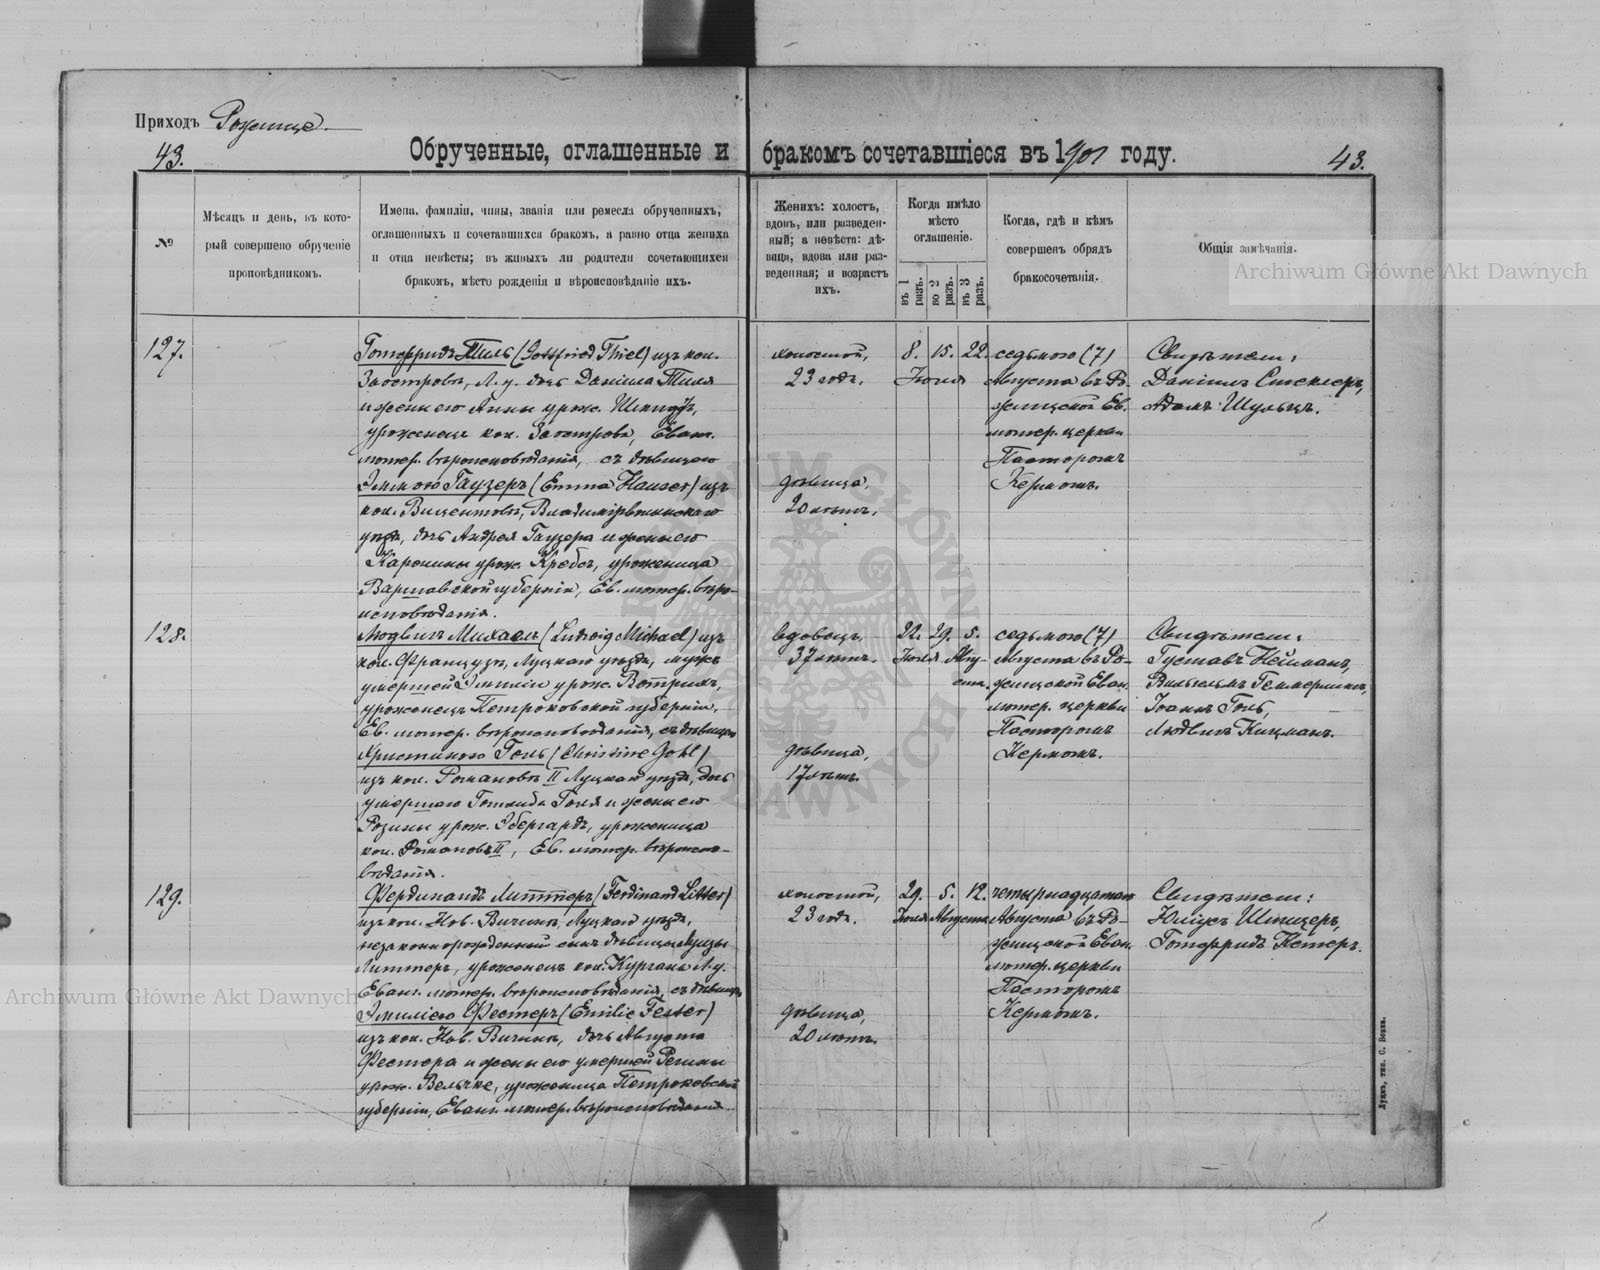 Приходъ Рожище.
43.
Обрученные, оглашенные и бракомъ сочетавшіеся въ 1901 году.
43.
№
Мѣсяцъ и день, въ кото-
рый совершено обрученіе
проповѣдникомъ.
Имена, фамиліи, чины, званія или ремесла обрученныхъ,
оглашенныхъ и сочетавшихся бракомъ, а равно отца жениха
и отца невѣсты; въ живыхъ ли родители сочетающихся
бракомъ, мѣсто рожденія и вѣроисповѣданіе ихъ.
Женихъ: холостъ,
вдовъ, или разведен-
ный; а невѣста: дѣ-
вица, вдова или раз-
веденная; и возрастъ
ихъ.
Когда имѣло
мѣсто
оглашеніе.
въ 1
разъ.
во 2
разъ.
въ 3
разъ.
Когда, гдѣ и кѣмъ
совершенъ обрядъ
бракосочетанія.
Общія замѣчанія.
Archiwum Główne Akt Dawnych
127.
Готфридъ Тиль (Gottfried Thiel) изъ кол.
Заостровъ, Л. у. сынъ Даніила Тиля
и жены его Анны урож.
уроженецъ кол. Заостровъ, Еванг.
лютер. вѣроисповѣданія, съ дѣвицею
Эммою Гаузеръ (Emma Hauser) изъ
кол. Вицентовъ, Владимірволынскаго
уѣзда, дочь Андрея Гаузера и жены его
Каролины урож. Кребсъ, уроженица
Варшавской губерніи, Ев. лютер. вѣро-
исповѣданія.
холостой,
23 годъ.
дѣвица,
20 лѣтъ.
8. 15. 22.
Іюля
седьмого (7)
Августа въ Ро-
жищской Ев.
лютер. церкви
Пасторомъ
Кермомъ.
Свидѣтели:
Даніилъ Стеклеръ,
Адамъ Шульцъ.
128.
Людвигъ Михаель (Ludwig Michael) изъ
кол. Французъ, Луцкаго уѣзда, мужъ
умершей Эмиліи урож.
уроженецъ Петроковской губерніи,
Ев. лютер. вѣроисповѣданія, съ дѣвицею
Христиною Голь (Christine Gohl)
изъ кол. Романовъ II Луцкаго уѣзда, дочь
умершаго Готлиба Голя и жены его
Розины урож. Эбергардъ, уроженица
кол. Романовъ II, Ев. лютер. вѣроиспо-
вѣданія.
вдовецъ,
37 лѣтъ.
дѣвица,
17 лѣтъ.
22. 29. 5.
Іюля Авгу-
ста.
седьмого (7)
Августа въ Ро-
жищской Еван.
лютер. церкви
Пасторомъ
Кермомъ.
Свидѣтели:
Густавъ Нейманъ,
Вильгельмъ Геммерлингъ,
Іоганъ Голь,
Людвигъ Кицманъ.
129.
Фердинандъ Литтеръ (Ferdinand Litter)
изъ кол. Нов. Вичинъ, Луцкаго уѣзда,
незаконнорожденный сынъ дѣвицы Луизы
Литтеръ, уроженецъ кол. Курганъ Л. у.
Еванг. лютер. вѣроисповѣданія, съ дѣвицею
Эмиліею Фестеръ (Emilie Fester)
изъ кол. Нов. Вичинъ, дочь Августа
Фестера и жены его умершей Регины
урож. Вельчке, уроженица Петроковской
губерніи, Еванг. лютер. вѣроисповѣданія.
холостой,
23 годъ.
дѣвица,
20 лѣтъ.
29. 5. 12.
Іюля Августа
четырнадцатаго
Августа въ Ро-
жищской Еван.
лютер. церкви
Пасторомъ
Кермомъ.
Свидѣтели:
Юліусъ Шпицеръ,
Готфридъ Кетеръ.
Archiwum Główne Akt Dawnych
Луцкъ, тип. С. Бокка.